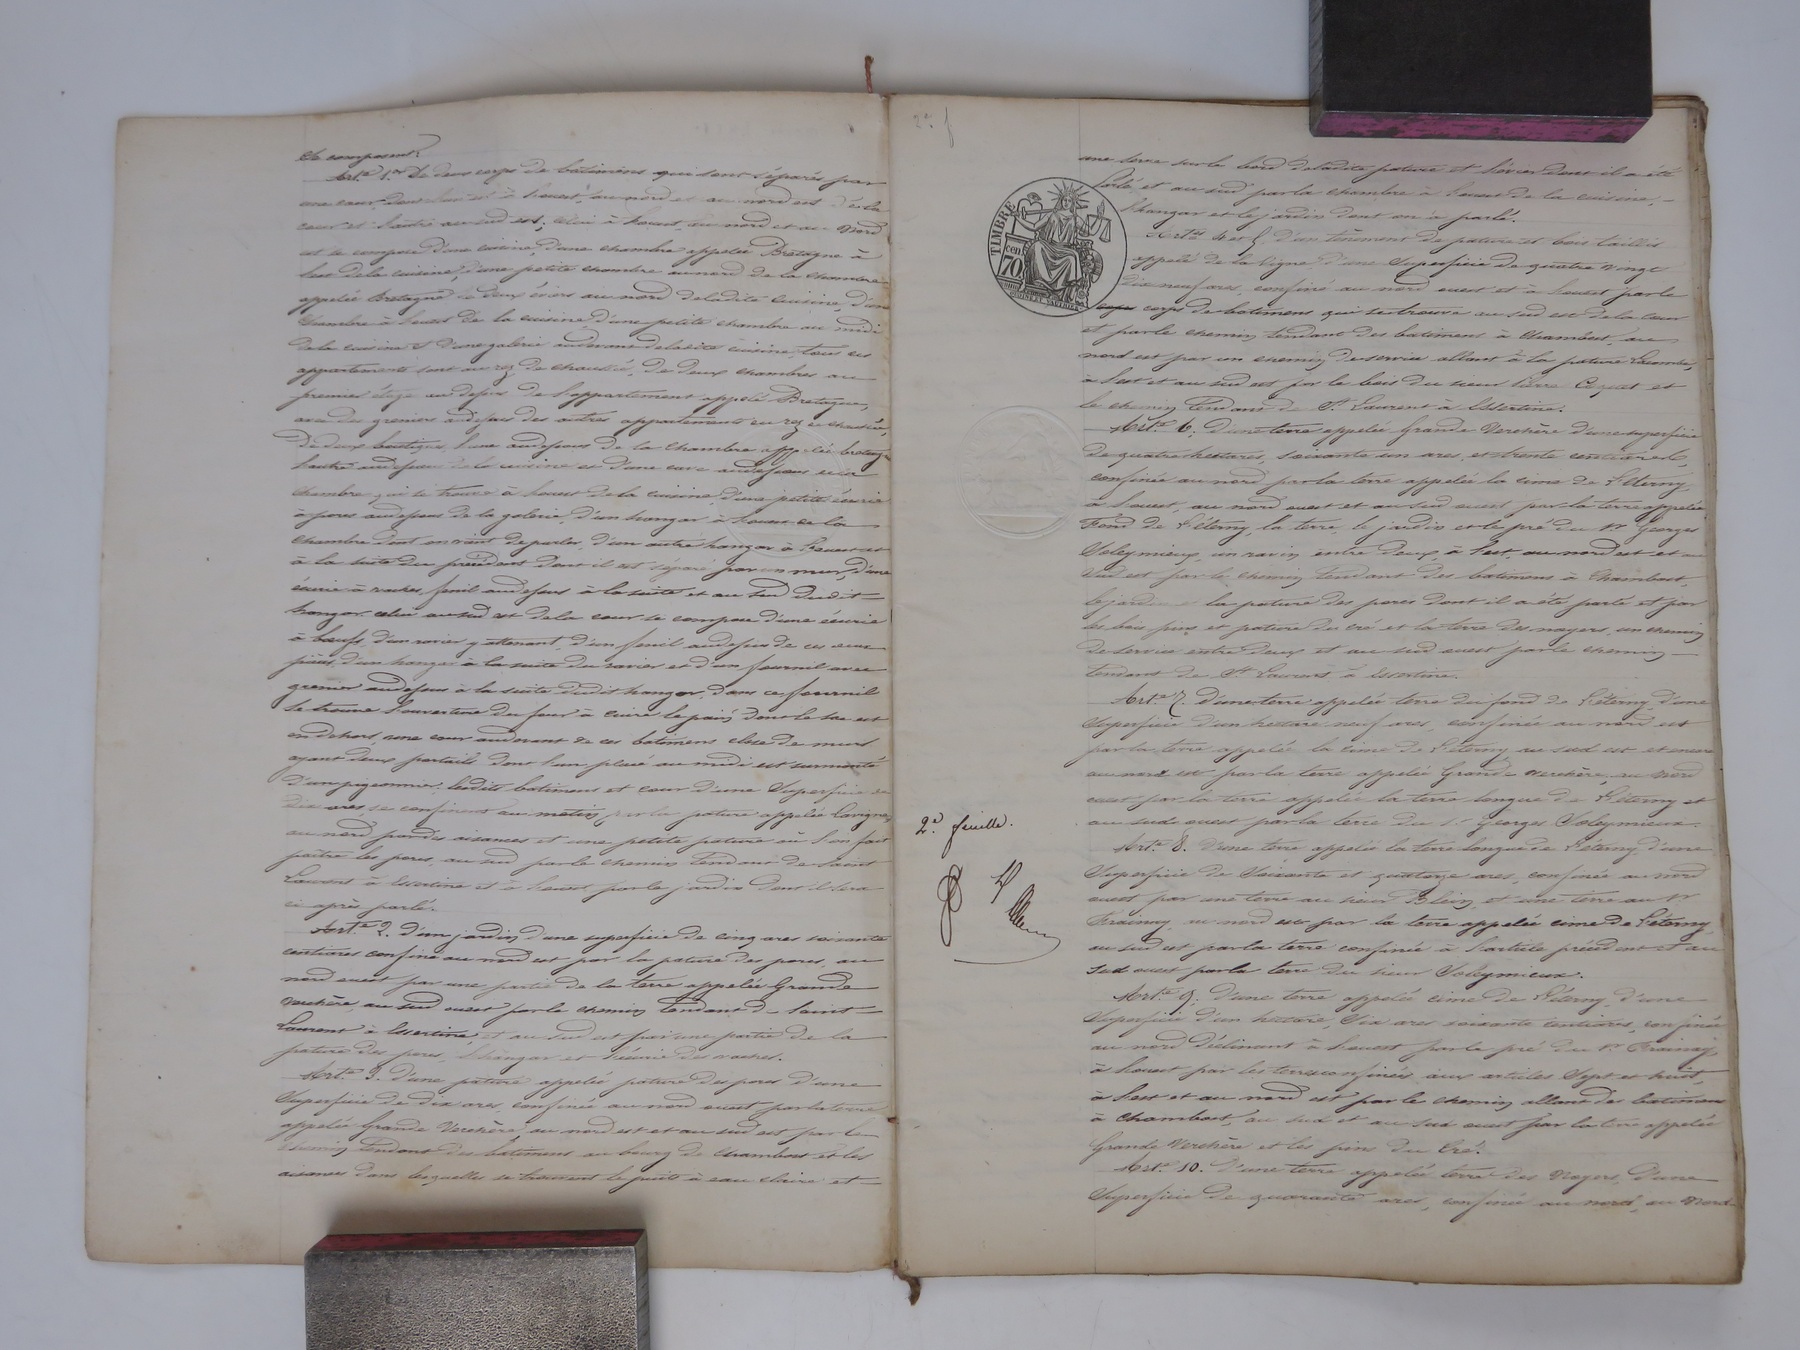 se composent:
Art.e 1.er De deux corps de bâtimens qui sont séparés par
une cour, dont l'un est à l'ouest, au nord et au nord est de la
cour et l'autre au sud est; celui à l'ouest, au nord et au nord
est se compose d'une cuisine, d'une chambre appelée Bretagne à
l'est de la cuisine, d'une petite chambre au nord de la chambre
appelée Bretagne de deux éviers au nord de ladite cuisine, d'une
chambre à l'ouest de la cuisine, d'une petite chambre au midi
de la cuisine et d'une galerie au devant de ladite cuisine, tous ces
appartements sont au rez de chaussée, de deux chambres au
premier étage au dessus de l'appartement appelé Bretagne,
avec des greniers au dessus des autres appartements au rez de chaussée,
De deux boutiques, l'une au dessous de la chambre appelée bretagne
l'autre au dessous de la cuisine et d'une cave au dessous de la
chambre qui se trouve à l'ouest de la cuisine, d'une petite écurie
à porcs au dessous de la galerie, d'un hangar à l'ouest de la
chambre dont on vient de parler, d'un autre hangar à l'ouest et
à la suite du précédent dont il est séparé par un mur, d'une
écurie à vaches, fenil au dessus à la suite et au sud dudit
hangar celui au sud est de la cour se compose d'une écurie
à bœufs, d'un ravier y attenant, d'un fenil au dessus de ces deux
pièces, d'un hangar à la suite du ravier et d'un fournil avec
grenier au dessus à la suite dudit hangar, dans ce fournil
se trouve l'ouverture du four à cuire le pain dont le sac est
en dehors, une cour au devant de ces bâtimens close de murs
ayant deux portails dont l'un placé au midi est surmonté
d'un pigeonnier. Lesdits bâtimens et cour d'une superficie de
dix ares, se confinent au matin par la pature appelée Lavigne,
au nord par des aisances et une petite pature où l'on fait
paître les porcs, au sud par le chemin tendant de Saint
Laurent à Essertine et à l'ouest par le jardin dont il sera
ci après parlé.
Art.e 2. d'un jardin d'une superficie de cinq ares soixante
centiares confiné au nord est par la pature des porcs, au
nord ouest par une partie de la terre appelée Grande
Verchère, au sud ouest par le chemin tendant de Saint
Laurent à Essertine, et au sud est par une partie de la
pature des porcs, l'hangar et l'écurie des vaches.
Art.e 3. D'une pature appelée pature des porcs d'une
superficie de dix ares, confinée au nord ouest par la terre
appelée Grande Verchère, au nord est et au sud est par le
chemin tendant des bâtimens au bourg de Chambost et les
aisances dans lesquelles se trouvent le puits à eau claire et
2e f
une serve sur le bord de ladite pature et l'évier dont il a été
parlé et au sud par la chambre à l'ouest de la cuisine,
l'hangar et le jardin dont on a parlé.
TIMBRE
cen
70
Art.es 4 et 5. d'un tènement de pature et bois taillis
appelé de la Vigne, d'une superficie de quatre vingt
dix neuf ares, confiné au nord ouest et à l'ouest par le
corps corps de bâtimens qui se trouve au sud est de la cour
et par le chemin tendant des bâtimens à Chambost, au
nord est par un chemin de service allant à la pature
à l'est et au sud est par le bois du sieur Pierre Coquet et
le chemin tendant de St. Laurent à Essertine.
Art.e 6. D'une terre appelée Grande Verchère d'une superficie
de quatre hectares, soixante un ares, et trente centiares,
confinée au nord par la terre appelée la cime de L'éterny
à l'ouest, au nord ouest et au sud ouest par la terre appelée
Fond de L'éterny, la terre, le jardin et le pré du Sr. Georges
Soleymieux, un ravin entre deux, à l'est, au nord est et au
sud est par le chemin tendant des bâtimens à Chambost,
le jardin et la pature des porcs dont il a été parlé et par
les bois pins et pature du cré et la terre des noyers, un chemin
de service entre deux et au sud ouest par le chemin
tendant de St. Laurent à Essertine.
Art.e 7. D'une terre appelée terre du fond de L'éterny, d'une
superficie d'un hectare neuf ares, confinée au nord est
par la terre appelée la cime de L'éterny au sud est et encore
au nord est par la terre appelée Grande Verchère, au nord
ouest par la terre appelée la terre longue de L'éterny et
au sud ouest par la terre du Sr. Georges Soleymieux.
2.e feuille.
Art.e 8. D'une terre appelée la terre longue de L'éterny, d'une
superficie de soixante et quatorze ares, confinée au nord
ouest par une terre au sieur Blein, et une terre au Sr
Frainay, au nord est par la terre appelée cime de L'éterny,
au sud est par la terre confinée à l'article précédent et au
sud ouest par la terre du sieur Soleymieux.
Art.e 9. D'une terre appelée cime de L'éterny, d'une
superficie d'un hectare, dix ares soixante centiares, confinée
au nord déclinant à l'ouest par le pré du Sr. Frainay,
à l'ouest par les terres confinées aux articles sept et huit,
à l'est et au nord est par le chemin allant des bâtimens
à Chambost, au sud et au sud ouest par la terre appelée
Grande Verchère et les pins du Cré.
Art.e 10. D'une terre appelée terre des Noyers, d'une
superficie de quarante ares, confinée au nord, au nord